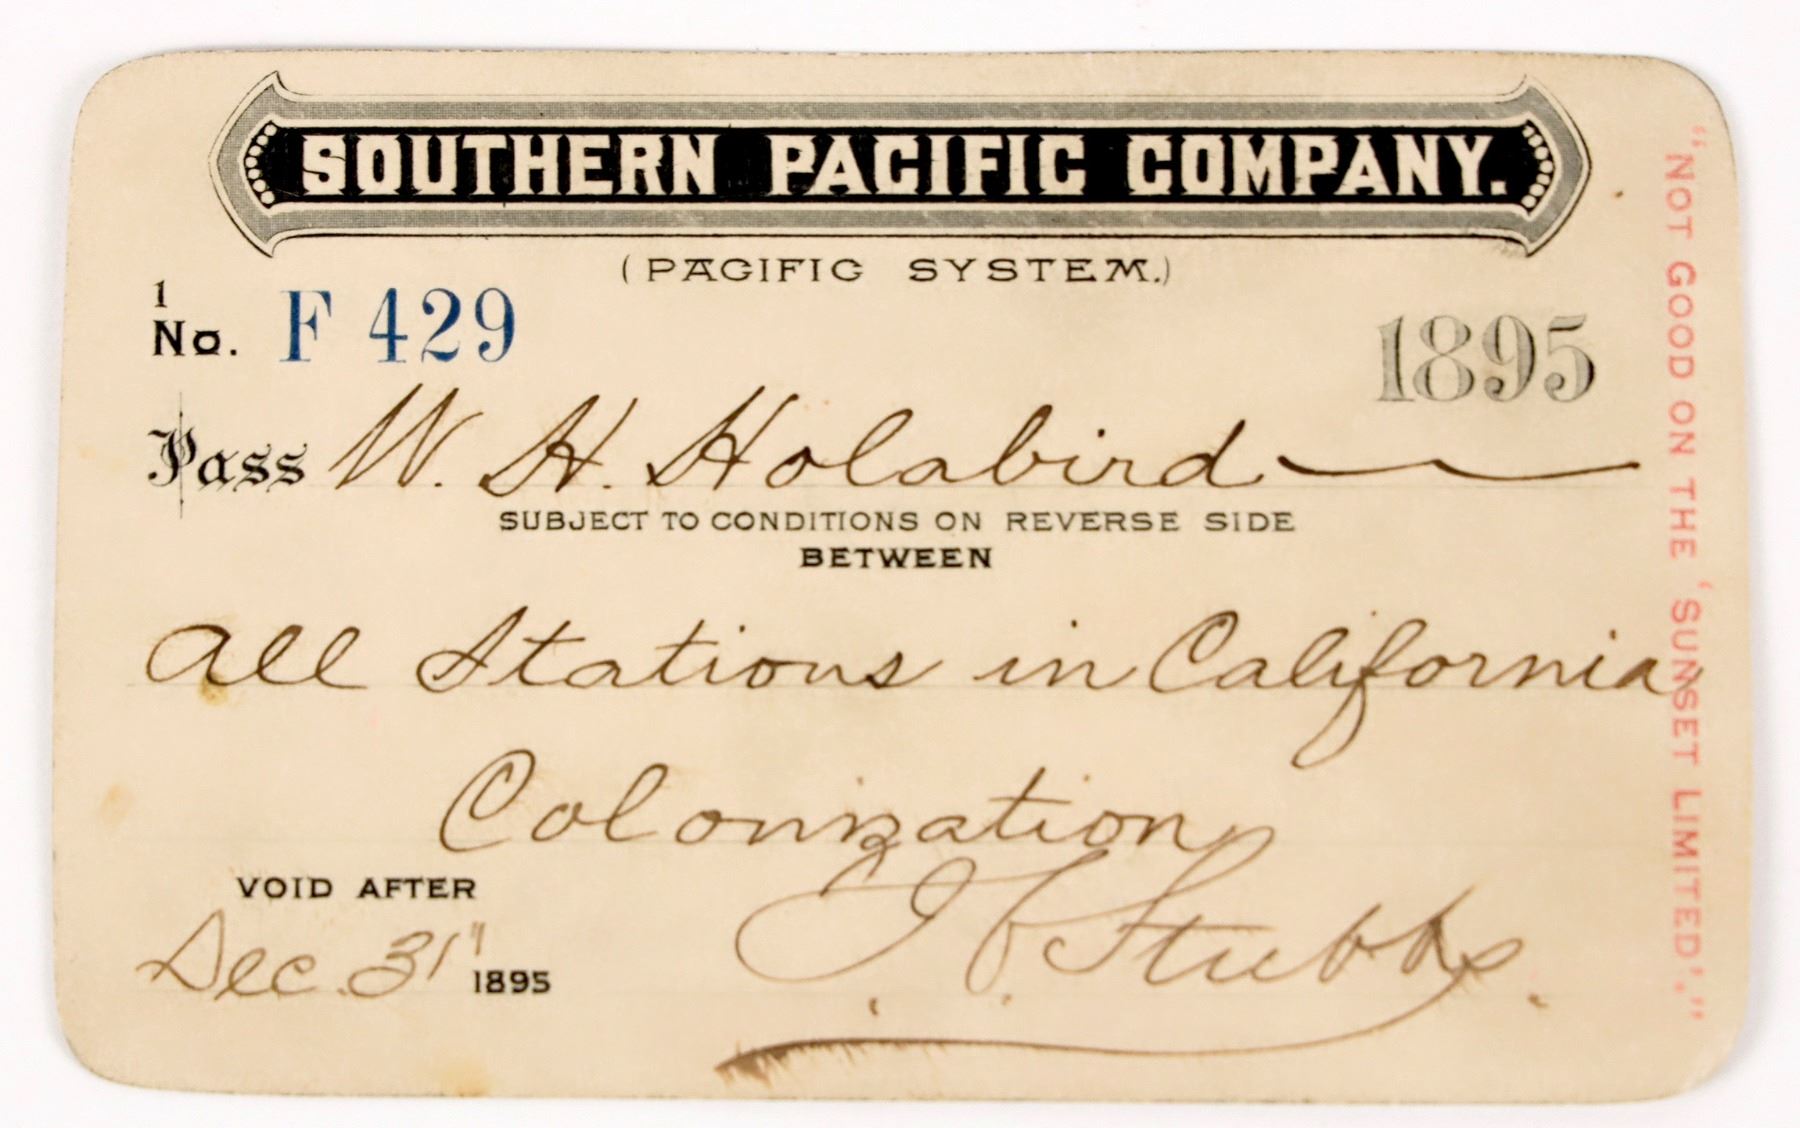 SOUTHERN PACIFIC COMPANY.
(PACIFIC SYSTEM.)
1
No. F 429
1895
Pass W. H. Holabird
SUBJECT TO CONDITIONS ON REVERSE SIDE
BETWEEN
All Stations in California
Colonization
VOID AFTER
Dec. 31" 1895
J. C. Stubbs.
"NOT GOOD ON THE 'SUNSET LIMITED'."